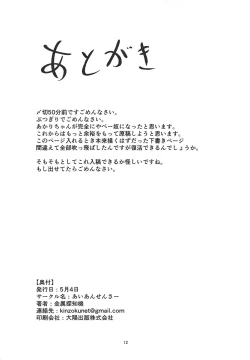 あとがき
〆切50分前ですごめんなさい。
ぶつぎりでごめんなさい。
あかりちゃんが完全にやべー奴になったと思います。
これからはもっと余裕をもって原稿しようと思います。
このページ入れるとき本来描くはずだった下書きページ
間違えて全部吹っ飛ばしたんですが復活できるんでしょうか。
そもそもとしてこれ入稿できるか怪しいですね。
もし出せてたらごめんなさい。
【奥付】
発行日：5月4日
サークル名：あいあんせんさー
著者：金属探知機
連絡先：kinzokunet@gmail.com
印刷会社：大陽出版株式会社
12